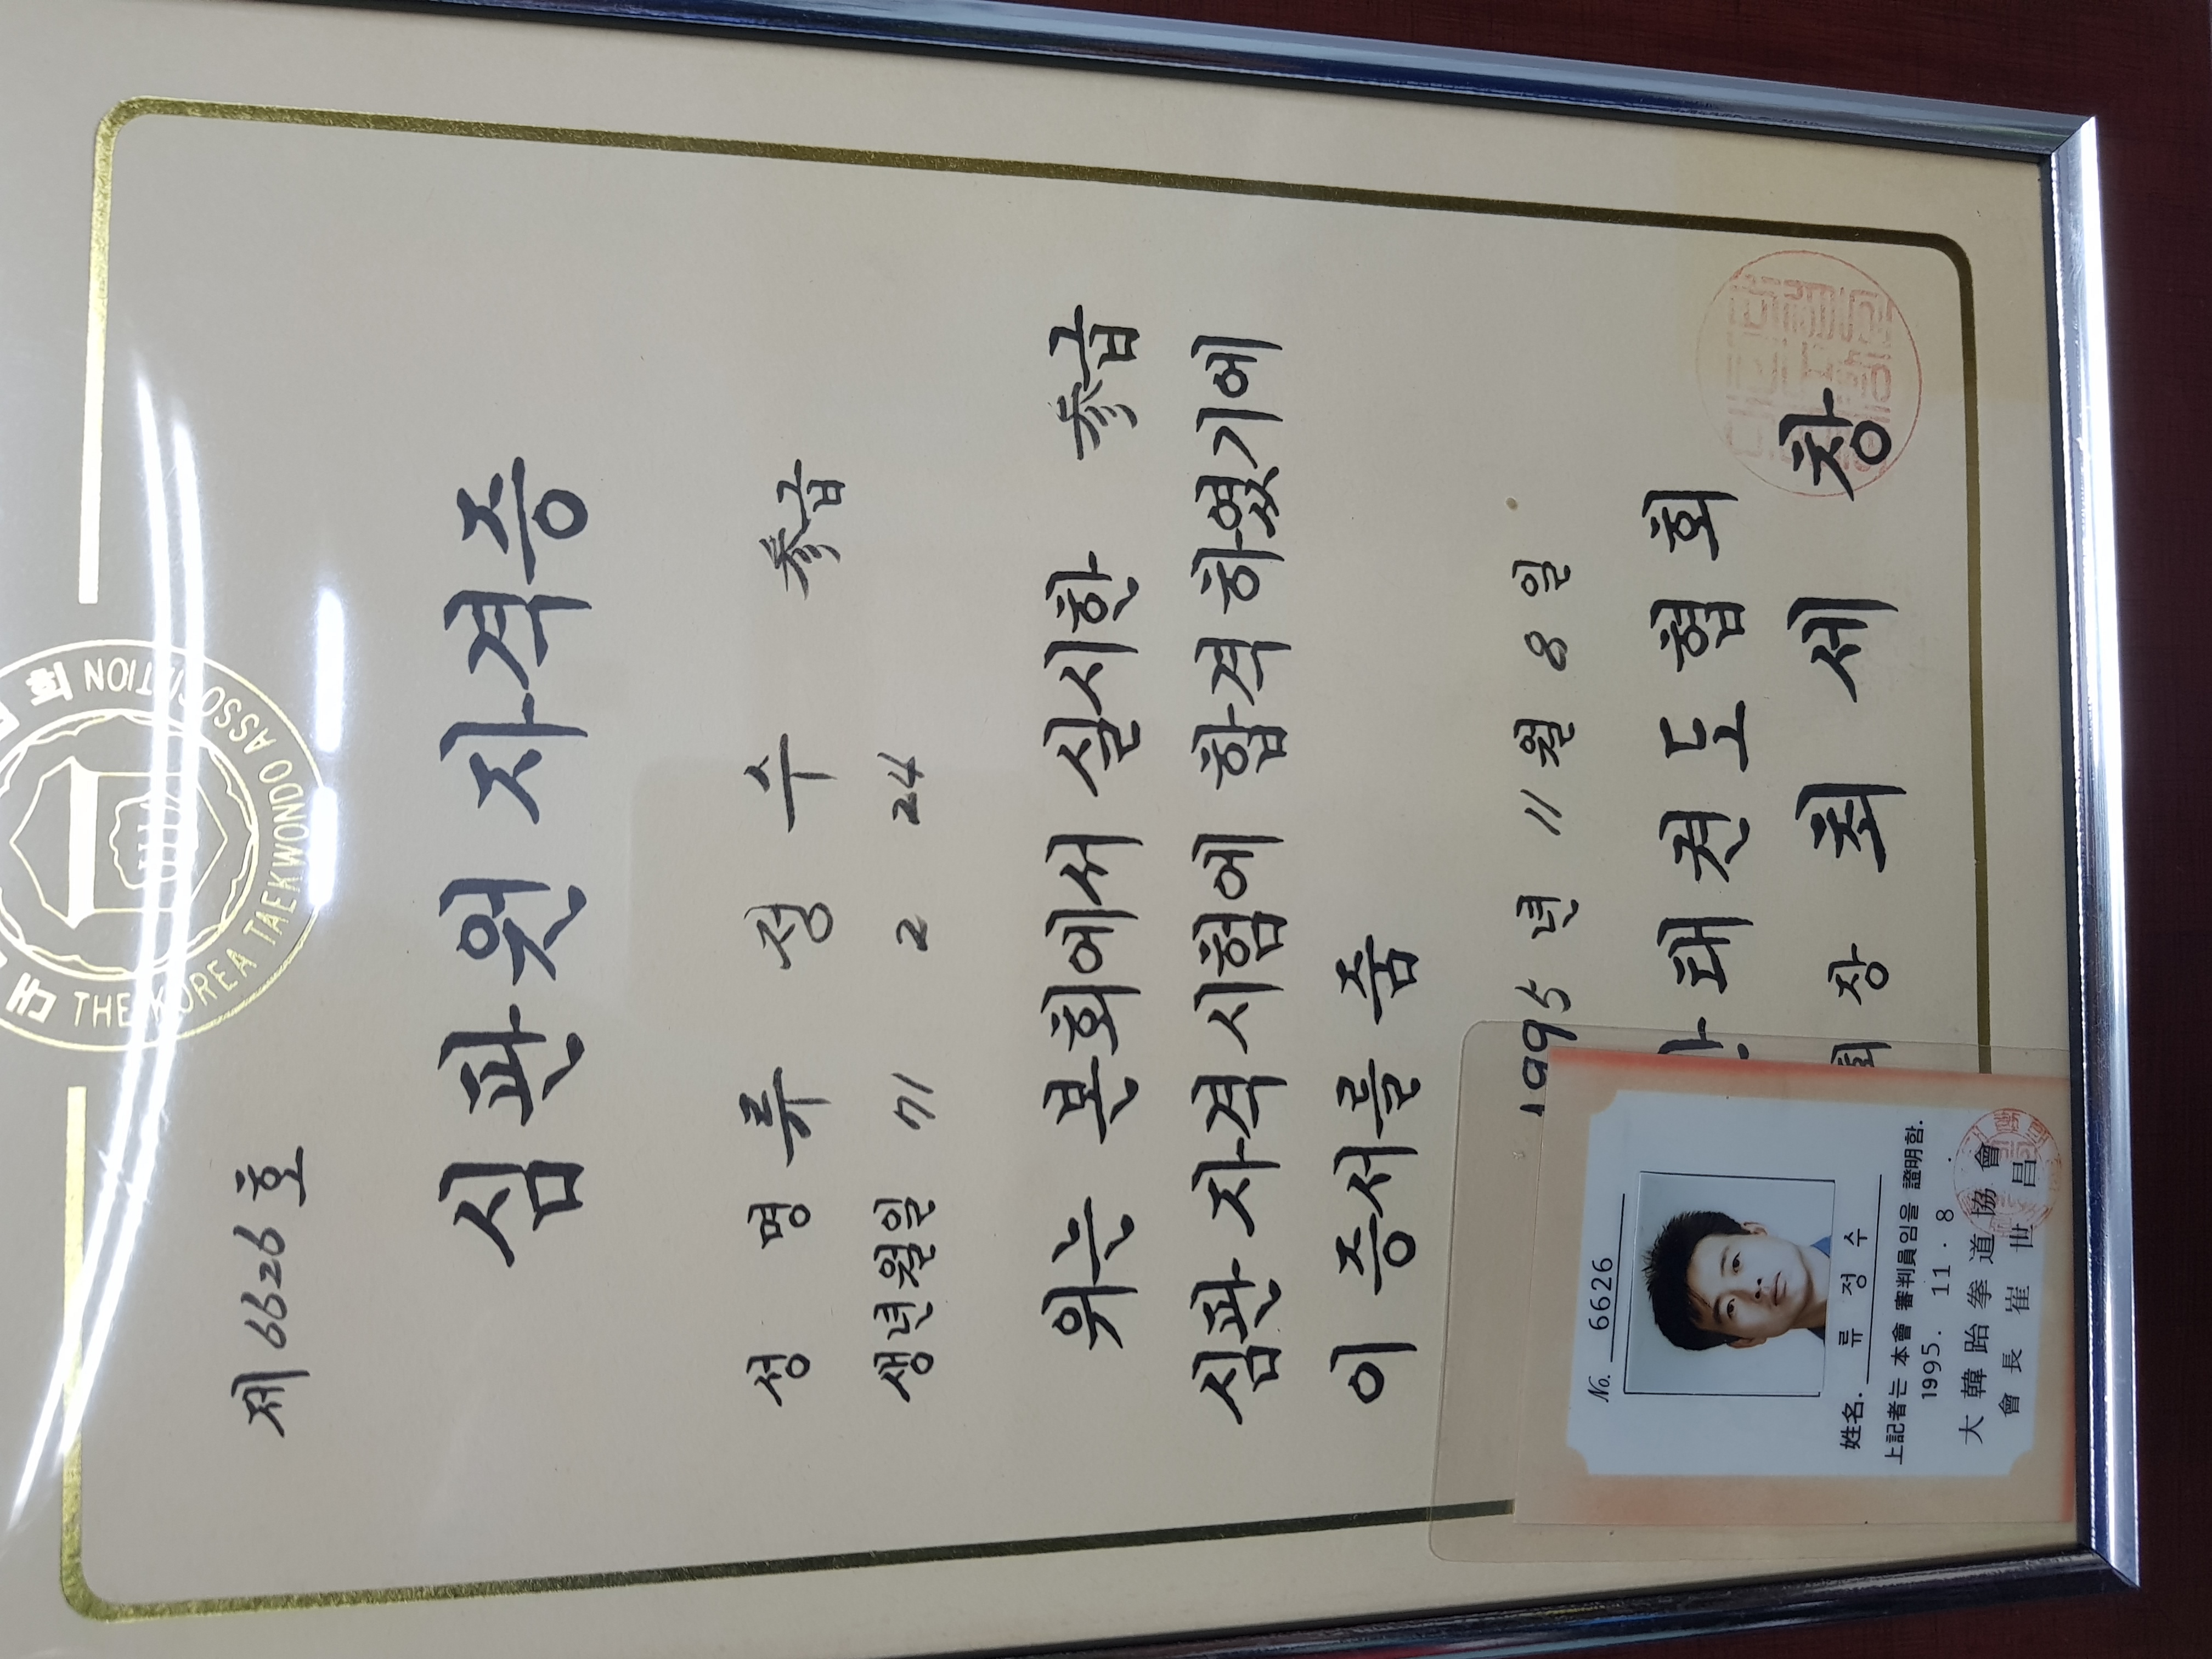 회
THE KOREA TAEKWONDO ASSOCIATION
제 6626 호
심판원 자격증
성 명 류 정 수 参급
생년월일 71 2 24
위는 본회에서 실시한 参급
심판 자격 시험에 합격 하였기에
이 증서를 줌
1995 년 11 월 8 일
태 권 도 협 회
회 장 최 세 창
No. 6626
姓名. 류 정 수
上記者는 本會 審判員임을 證明함.
1995. 11. 8.
大韓跆拳道協會
會長 崔世昌